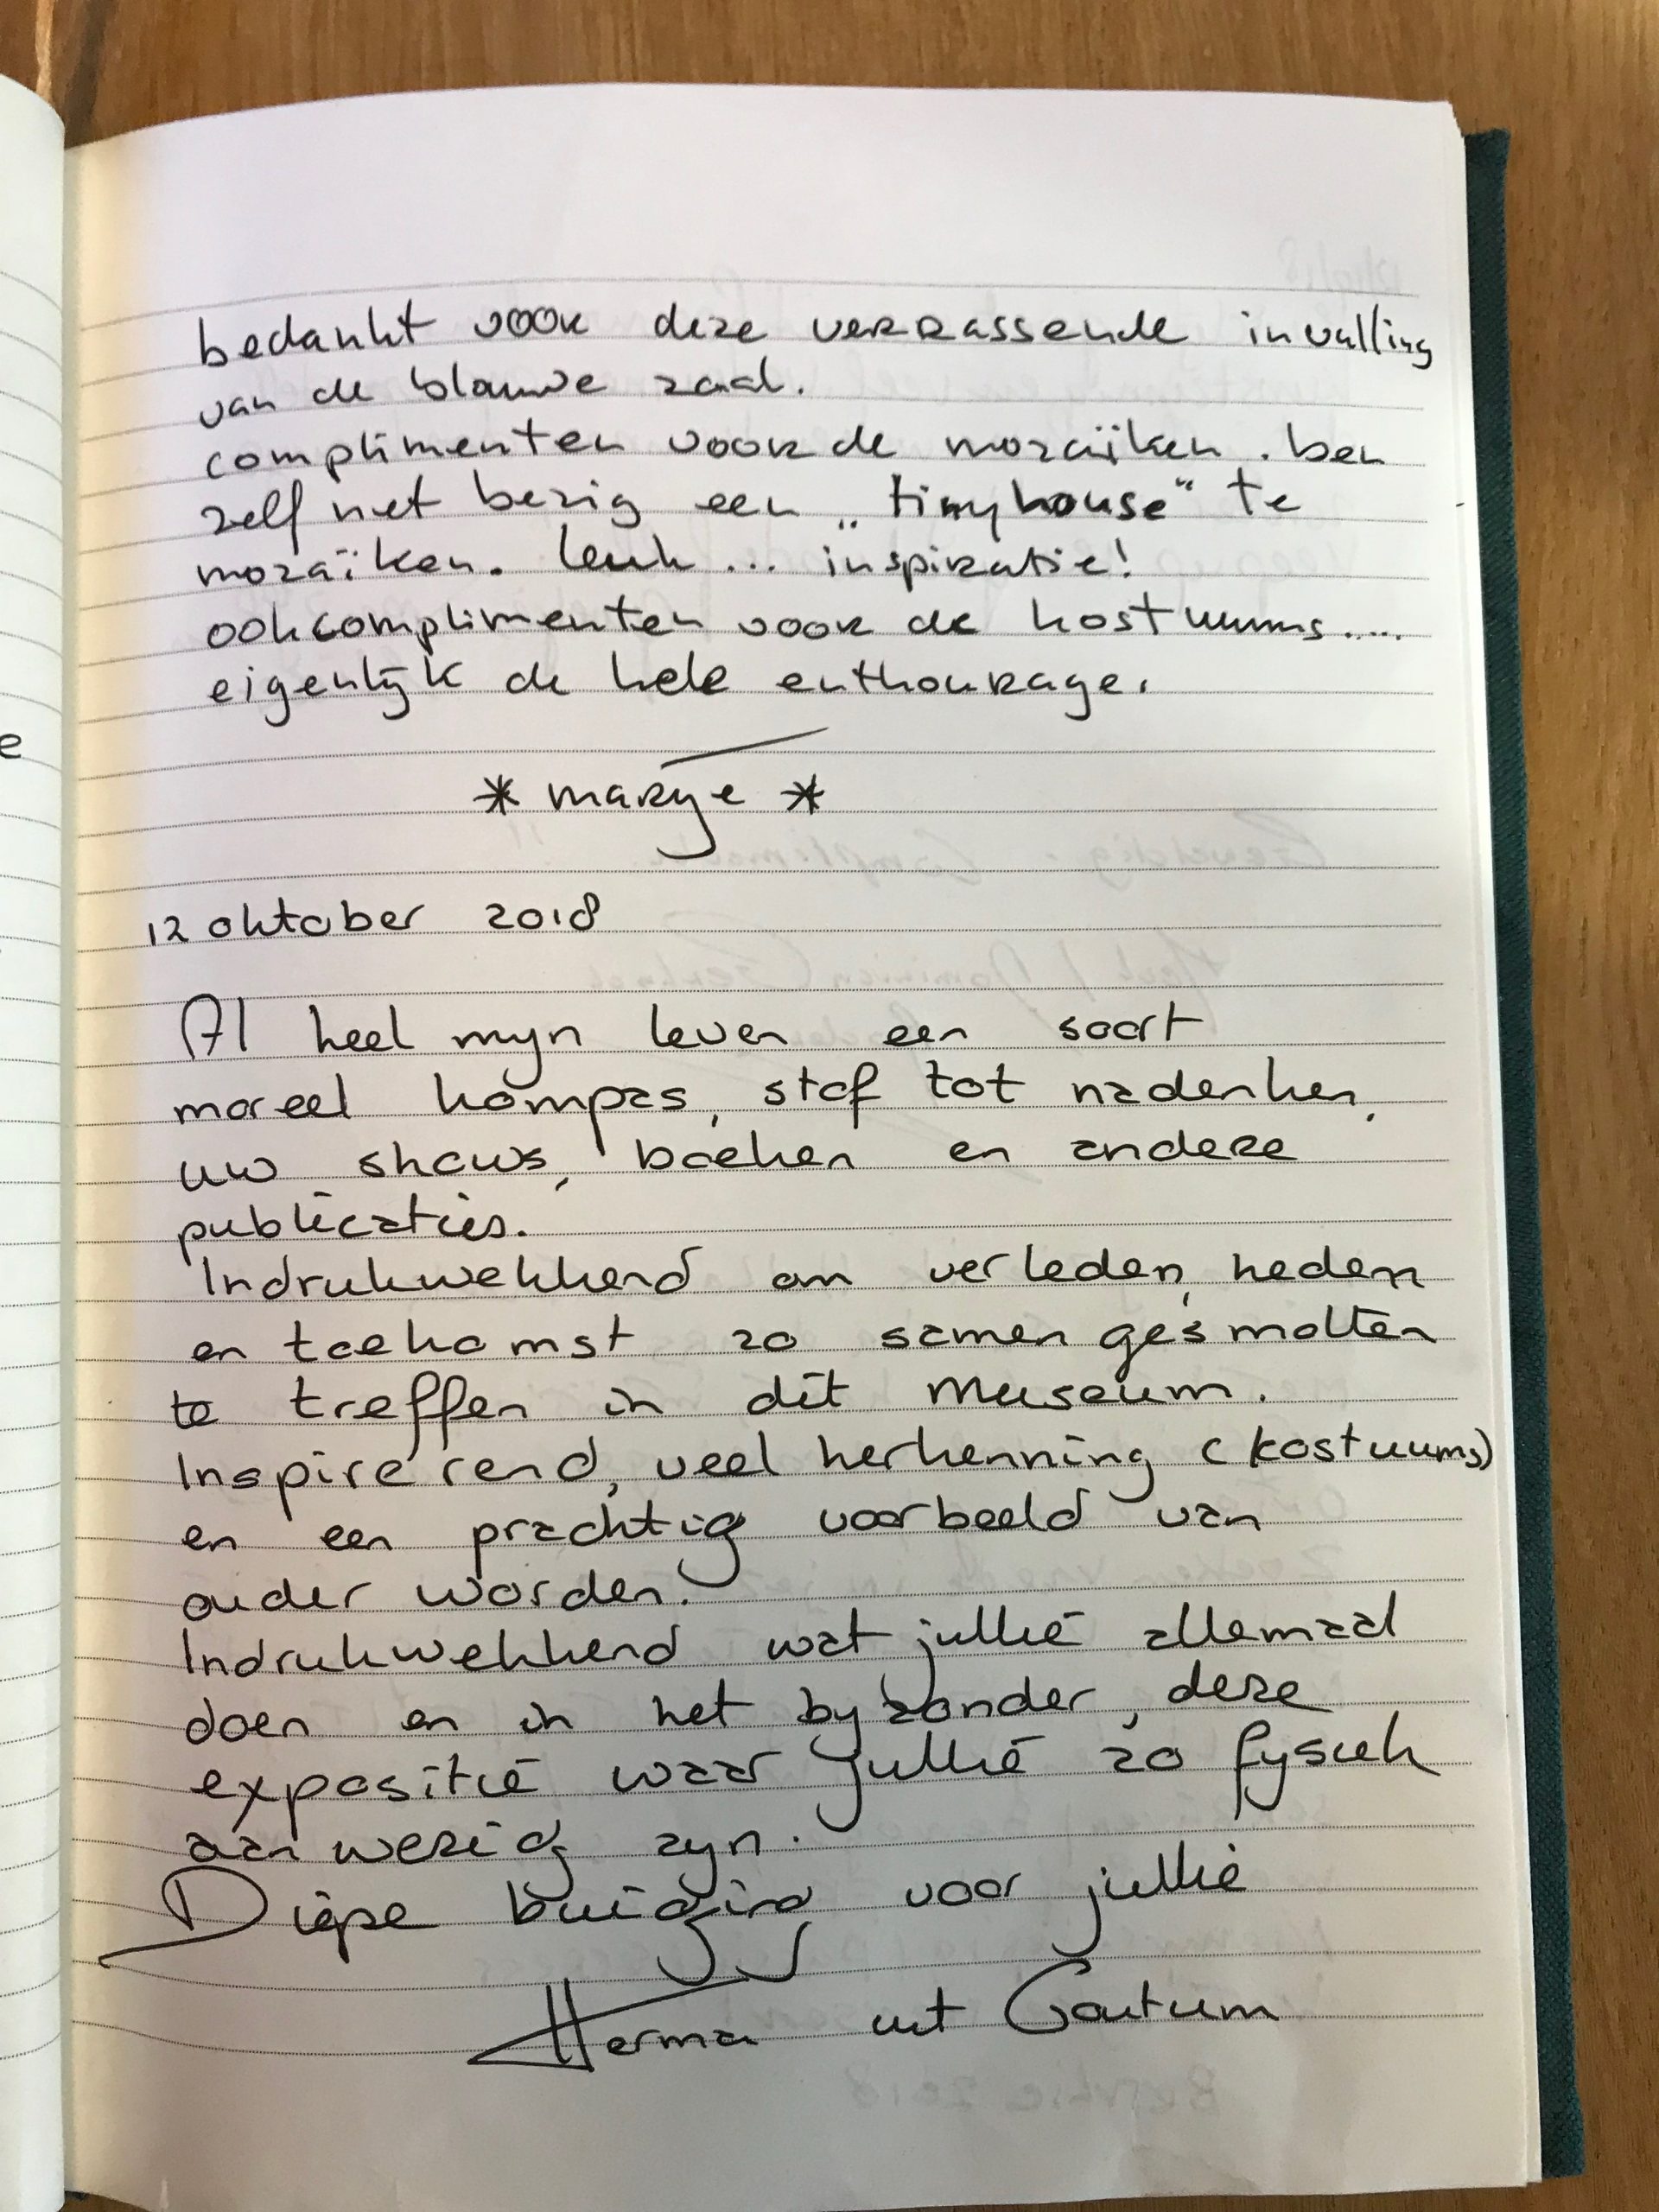 bedankt voor deze verrassende invulling
van de blauwe zaal.
complimenten voor de mozaïken. ben
zelf net bezig een „tinyhouse“ te
mozaïken. leuk ... inspiratie!
ook complimenten voor de kostuums.....
eigenlijk de hele enthourage.
* marije *
12 oktober 2018
Al heel mijn leven een soort
moreel kompas, stof tot nadenken,
uw shows, boeken en andere
publicaties.
Indrukwekkend om verleden, heden
en toekomst zo samen gesmolten
te treffen in dit museum.
Inspirerend, veel herkenning (kostuums)
en een prachtig voorbeeld van
ouder worden.
Indrukwekkend wat jullie allemaal
doen en in het byzonder, deze
expositie waar jullie zo fysiek
aanwezig zyn.
Diepe buiging voor jullie
Herma uit Goutum
e